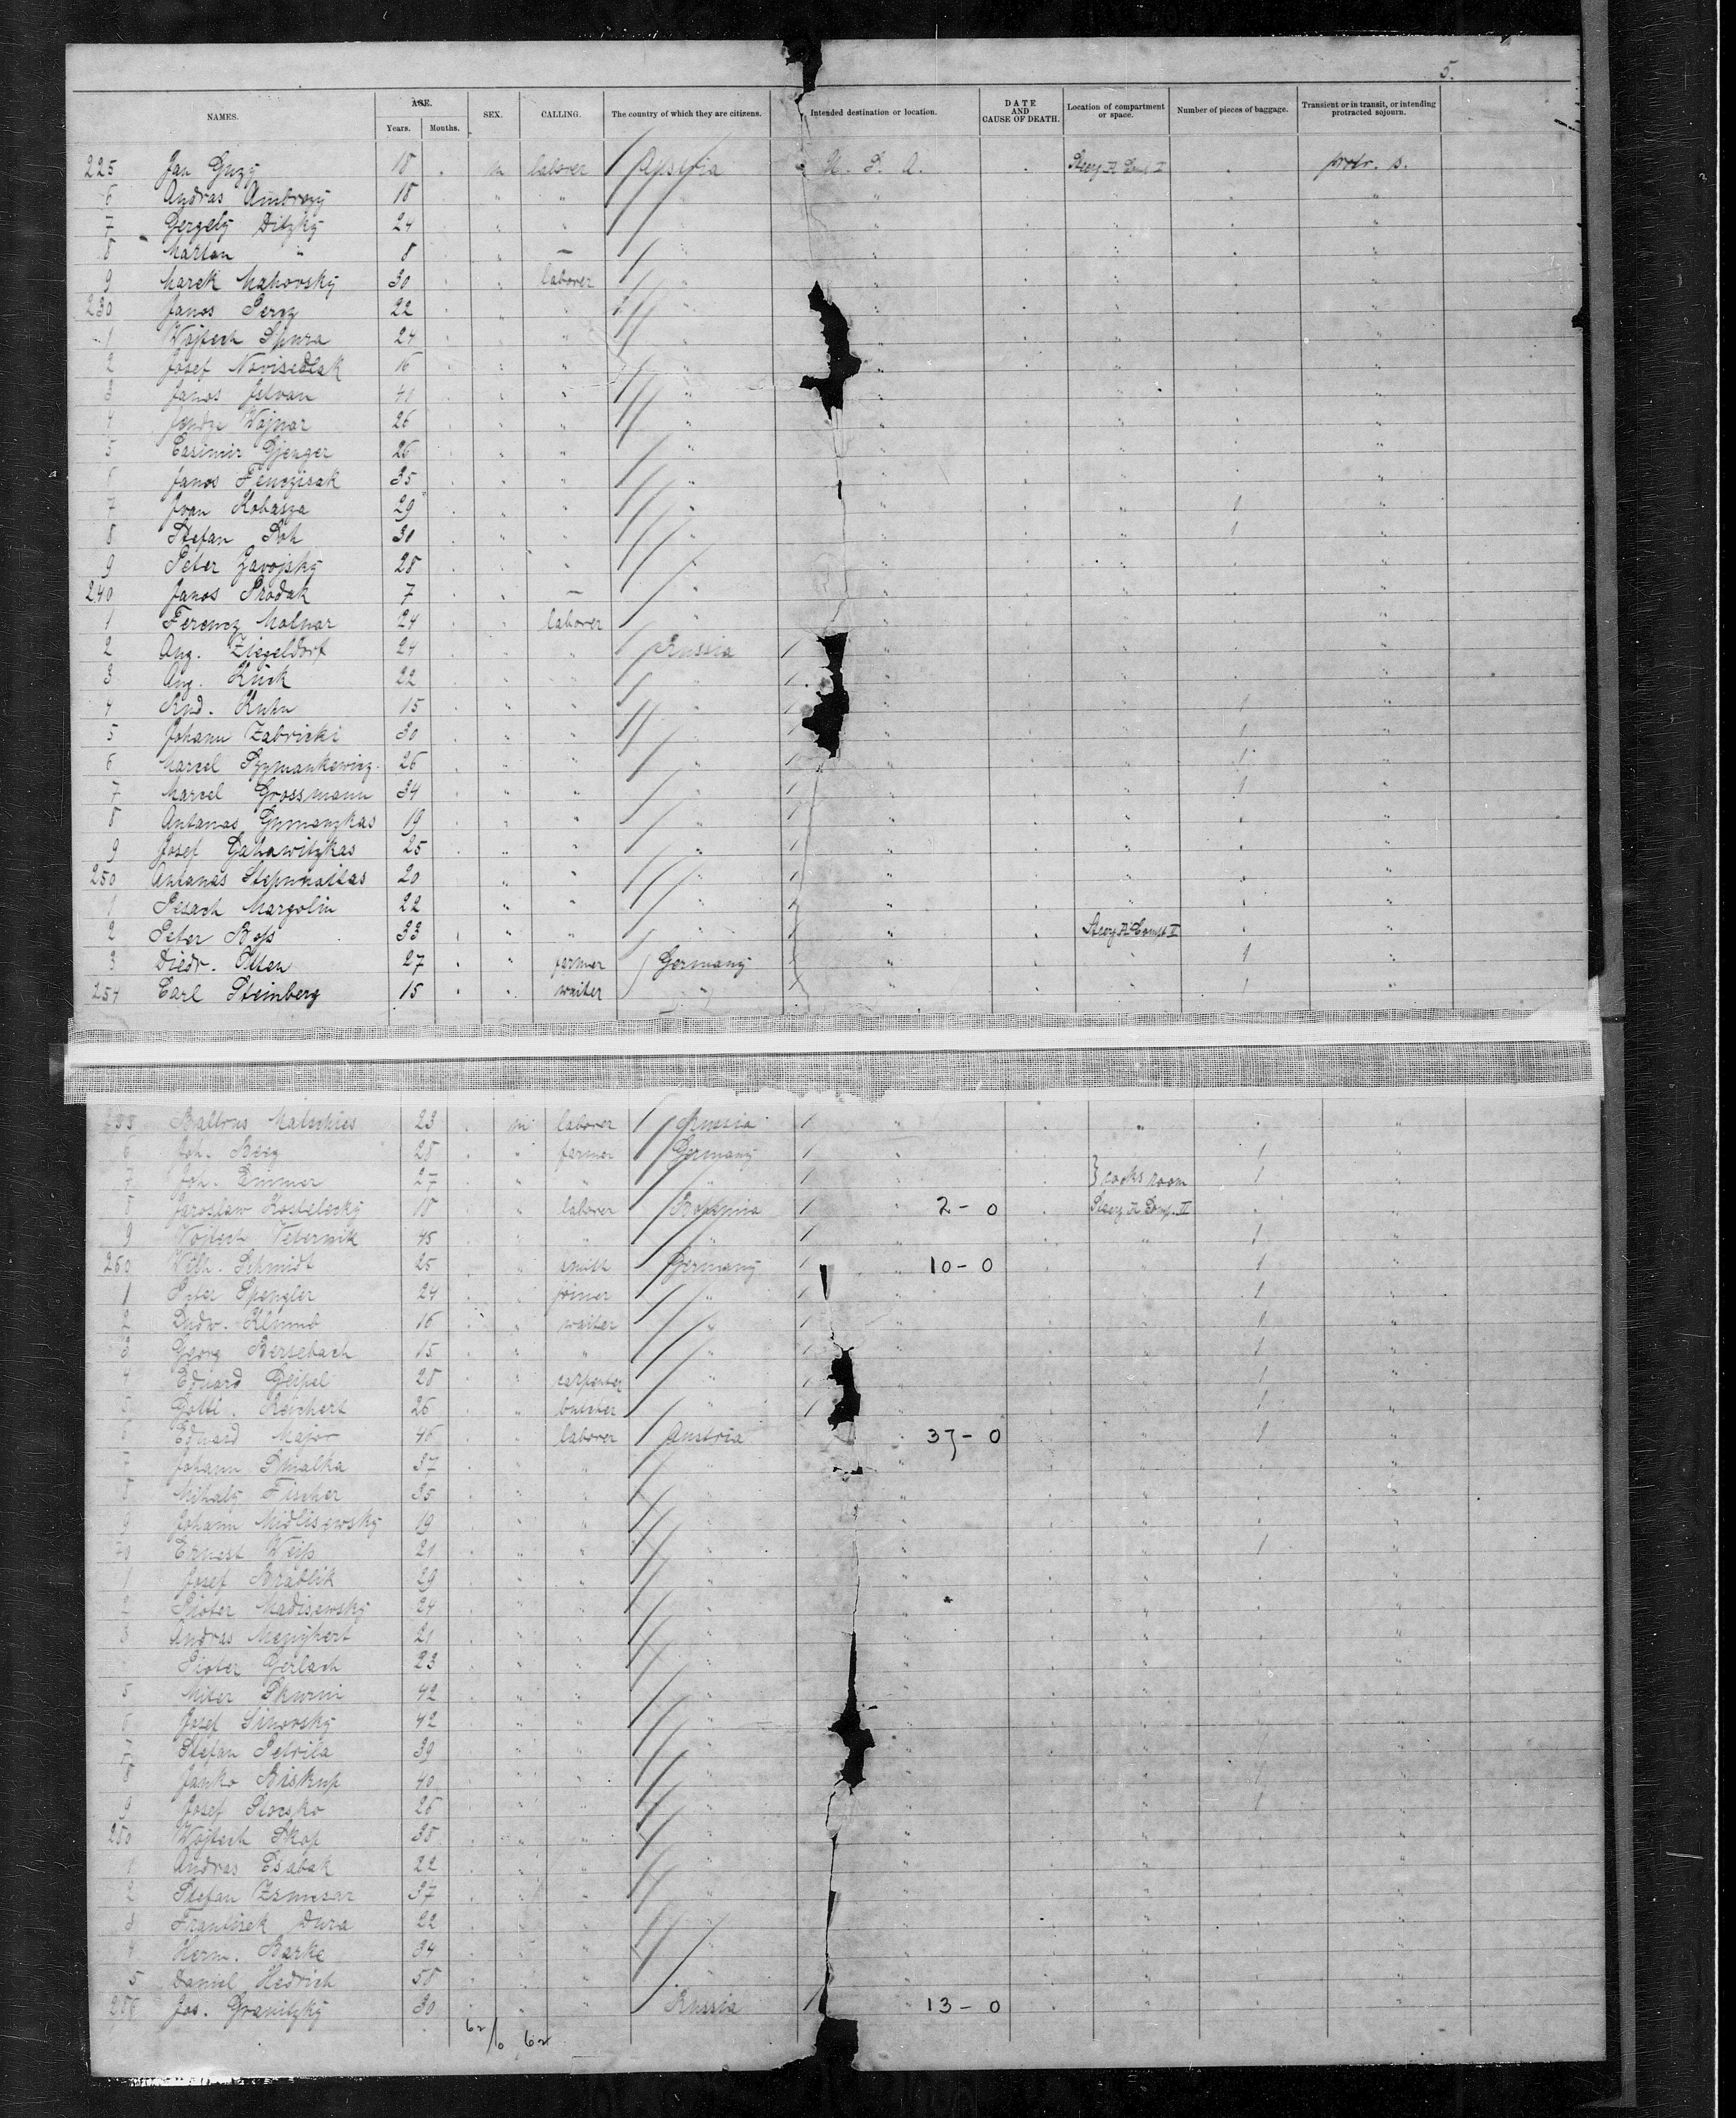 5.
NAMES. AGE. Years. Months. SEX. CALLING. The country of which they are citizens. Intended destination or location. DATE AND CAUSE OF DEATH. Location of compartment or space. Number of pieces of baggage. Transient or in transit, or intending protracted sojourn.
225 Jan Guzy 18 m laborer Austria U. S. A. protr. s.
6 Andras Ambrozy 18 " " " "
7 Gergely Ditzky 24 " " " "
8 Marton " 8 " — " "
9 Marek Mahovsky 30 " laborer " "
230 Janos Percz 22 " " " "
1 Wojtech Spura 24 " " " "
2 Josef Novisedlak 16 " " " "
3 Janos Istvan 40 " " " "
4 Wojnar 26 " " " "
5 Casimir Gjenger 26 " " " "
6 Janos Fenczisak 35 " " " "
7 Ivan Kobasza 29 " " " " 1
8 Stefan Roh 30 " " " " 1
9 Peter Zavojsky 28 " " " "
240 Janos Prodak 7 " — " "
1 Ferencz Molnar 24 " laborer " "
2 Aug. Ziegeldorf 24 " " Russia "
3 Aug. Kück 22 " " " "
4 Rud. Kuhn 15 " " " " 1
5 Johann Zabricki 30 " " " " 1
6 Marcel Szymankewicz 26 " " " " 1
7 Marcel Grossmann 34 " " " " 1
8 Antanas 19 " " " "
9 Josef 25 " " " "
250 Antanas 20 " " " "
1 Pesach Margolin 22 " " " "
2 Peter Boss 33 " " " " Steerg. A Compt II
3 Diedr. Otten 27 " farmer Germany " 1
254 Carl Steinberg 15 " waiter " " 1
255 Baltrus Matschies 23 m laborer Russia "
6 Joh. Berg 28 " farmer Germany " 1
7 Joh. 27 " " " " } cooks room 1
8 Jaroslaw Kostelecky 18 " laborer Bohemia " 2 - 0
9 Wojtech Veternik 45 " " " " 1
260 Wilh. Schmidt 25 " smith Germany " 10 - 0 1
1 Peter Spengler 24 " joiner " " 1
2 Ludw. Klumb 16 " waiter " " 1
3 Georg Bersebach 15 " " " " 1
4 Eduard Geipel 28 " carpenter " " 1
5 Gottl. Reichert 26 " butcher " " 1
6 Eduard Major 46 " laborer Austria " 37 - 0 1
7 Johann Smialka 37 " " " "
8 Mihaly Fischer 35 " " " "
9 Johann 19 " " " "
70 Ernest Weiss 21 " " " " 1
1 Josef Brablik 29 " " " "
2 Pioter Madisewsky 24 " " " "
3 Andras Menyhert 21 " " " "
Pioter Gerlach 23 " " " "
5 Miter Skurni 42 " " " "
6 Josef Sinovsky 42 " " " "
7 Stefan Petrila 39 " " " " 1
8 Janko Biskup 40 " " " " 1
9 Josef Plocsko 26 " " " " 1
280 Wojtech Skop 38 " " " "
1 Andras Csabak 22 " " " "
2 Stefan 37 " " " "
3 Frantisek Dura 22 " " " "
4 Herm. Barke 34 " " " "
5 Daniel Hedrich 58 " " " "
286 Jos. Granitzky 30 " " Russia " 13 - 0
62/0 62